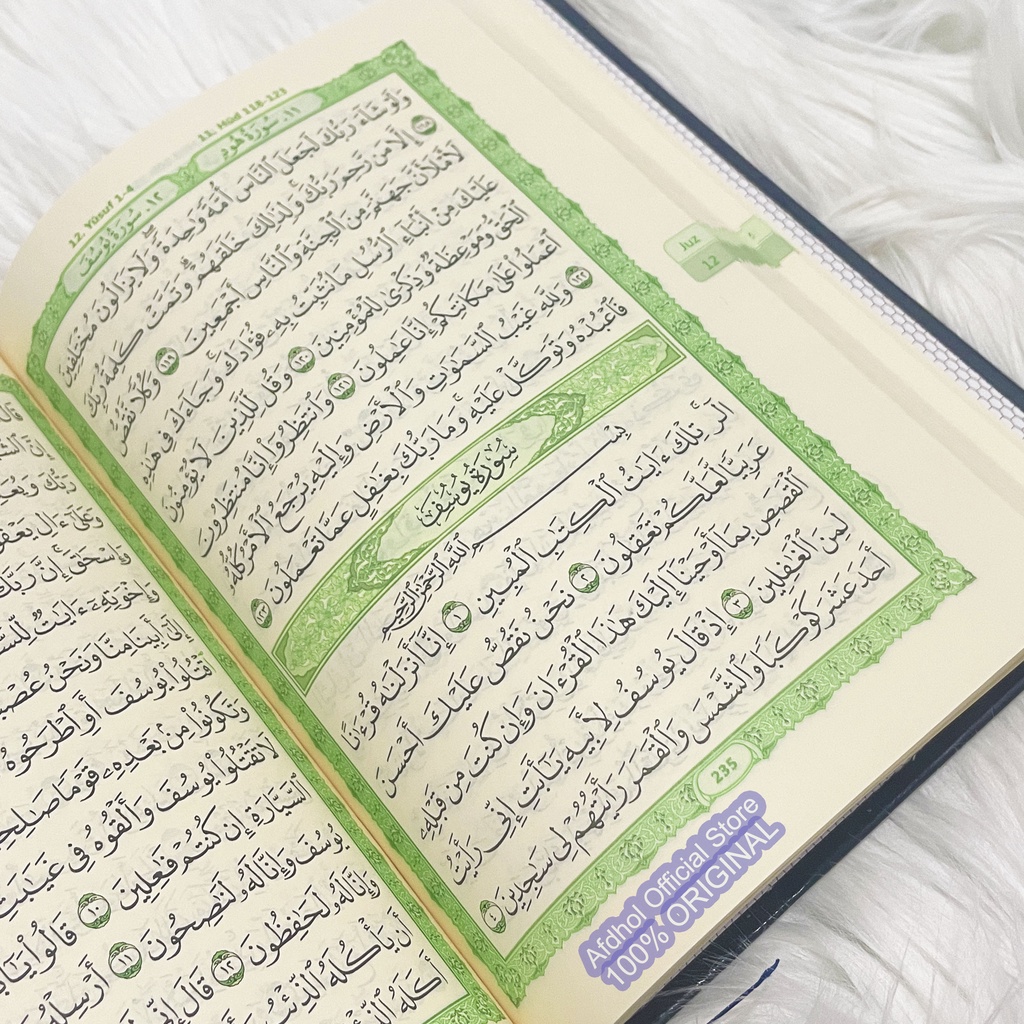 11. Hūd 118-123
١١. سُوْرَةُ هُود
12. Yūsuf 1-4
١٢. سُوْرَةُ يُوسُف
وَلَوْ شَآءَ رَبُّكَ لَجَعَلَ ٱلنَّاسَ أُمَّةً وَٰحِدَةً ۖ وَلَا يَزَالُونَ مُخْتَلِفِينَ
١١٨ إِلَّا مَن رَّحِمَ رَبُّكَ ۚ وَلِذَٰلِكَ خَلَقَهُمْ ۗ وَتَمَّتْ كَلِمَةُ رَبِّكَ
لَأَمْلَأَنَّ جَهَنَّمَ مِنَ ٱلْجِنَّةِ وَٱلنَّاسِ أَجْمَعِينَ ١١٩ وَكُلًّا نَّقُصُّ
عَلَيْكَ مِنْ أَنۢبَآءِ ٱلرُّسُلِ مَا نُثَبِّتُ بِهِۦ فُؤَادَكَ ۚ وَجَآءَكَ فِى هَٰذِهِ
ٱلْحَقُّ وَمَوْعِظَةٌ وَذِكْرَىٰ لِلْمُؤْمِنِينَ ١٢٠ وَقُل لِّلَّذِينَ لَا يُؤْمِنُونَ
ٱعْمَلُوا۟ عَلَىٰ مَكَانَتِكُمْ إِنَّا عَٰمِلُونَ ١٢١ وَٱنتَظِرُوٓا۟ إِنَّا مُنتَظِرُونَ
١٢٢ وَلِلَّهِ غَيْبُ ٱلسَّمَٰوَٰتِ وَٱلْأَرْضِ وَإِلَيْهِ يُرْجَعُ ٱلْأَمْرُ كُلُّهُۥ
فَٱعْبُدْهُ وَتَوَكَّلْ عَلَيْهِ ۚ وَمَا رَبُّكَ بِغَٰفِلٍ عَمَّا تَعْمَلُونَ ١٢٣
سُورَةُ يُوسُفَ
بِسْمِ ٱللَّهِ ٱلرَّحْمَٰنِ ٱلرَّحِيمِ
الٓر ۚ تِلْكَ ءَايَٰتُ ٱلْكِتَٰبِ ٱلْمُبِينِ ١ إِنَّآ أَنزَلْنَٰهُ قُرْءَٰنًا
عَرَبِيًّا لَّعَلَّكُمْ تَعْقِلُونَ ٢ نَحْنُ نَقُصُّ عَلَيْكَ أَحْسَنَ
ٱلْقَصَصِ بِمَآ أَوْحَيْنَآ إِلَيْكَ هَٰذَا ٱلْقُرْءَانَ وَإِن كُنتَ مِن قَبْلِهِۦ
لَمِنَ ٱلْغَٰفِلِينَ ٣ إِذْ قَالَ يُوسُفُ لِأَبِيهِ يَٰٓأَبَتِ إِنِّى رَأَيْتُ
أَحَدَ عَشَرَ كَوْكَبًا وَٱلشَّمْسَ وَٱلْقَمَرَ رَأَيْتُهُمْ لِى سَٰجِدِينَ ٤
235
Juz
12
قَالَ
إِنَّ
رَبُّكَ
وَعَلَىٰٓ ءَالِ
وَإِسْحَٰقَ ۚ إِنَّ رَبَّكَ
وَإِخْوَتِهِۦٓ ءَايَٰتٌ
إِلَىٰٓ أَبِينَا مِنَّا وَنَحْنُ
ٱقْتُلُوا۟ يُوسُفَ أَوِ ٱطْرَحُوهُ
وَتَكُونُوا۟ مِنۢ بَعْدِهِۦ قَوْمًا
لَا تَقْتُلُوا۟ يُوسُفَ وَأَلْقُوهُ فِى غَيَٰبَتِ
ٱلسَّيَّارَةِ إِن كُنتُمْ فَٰعِلِينَ ١٠ قَالُوا۟
يُوسُفَ وَإِنَّا لَهُۥ لَنَٰصِحُونَ ١١ أَرْسِلْهُ
وَإِنَّا لَهُۥ لَحَٰفِظُونَ ١٢ قَالَ إِنِّى
أَن يَأْكُلَهُ ٱلذِّئْبُ
أَكَلَهُ
Afdhol Official Store
100% ORIGINAL